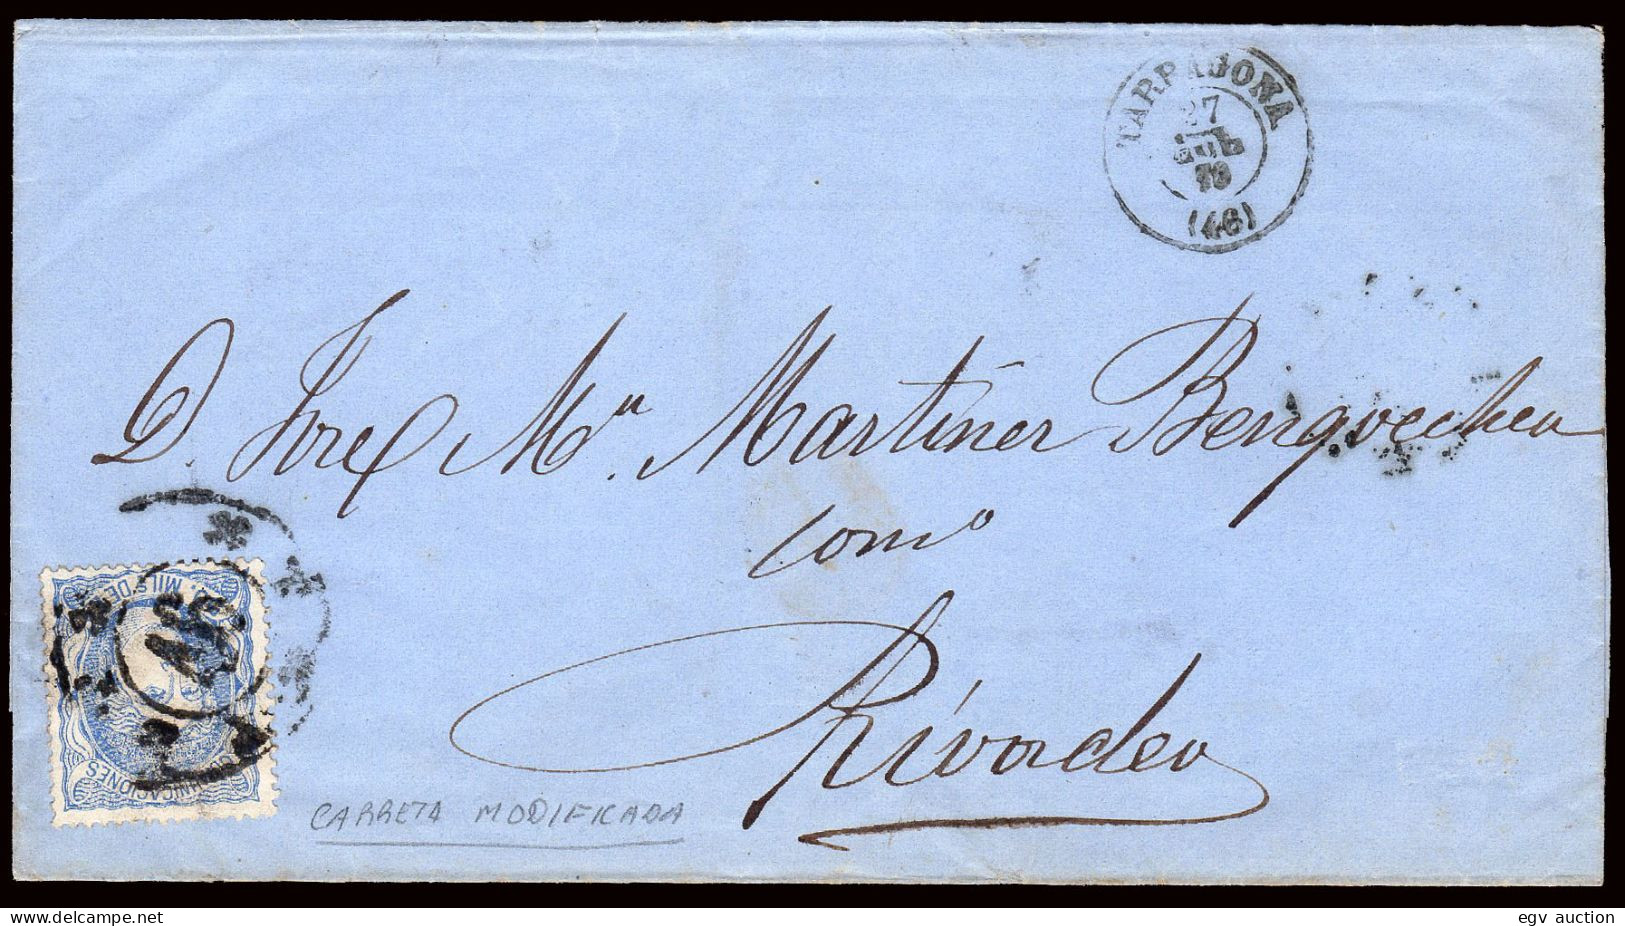 TARRAGONA
27
JUL
70
(46)
D. José Mª. Martinez Bengoechea
comº
Rivadeo
MILS DE
COMUNICACIONES
CARRETA MODIFICADA
delcampe.net
egv auction